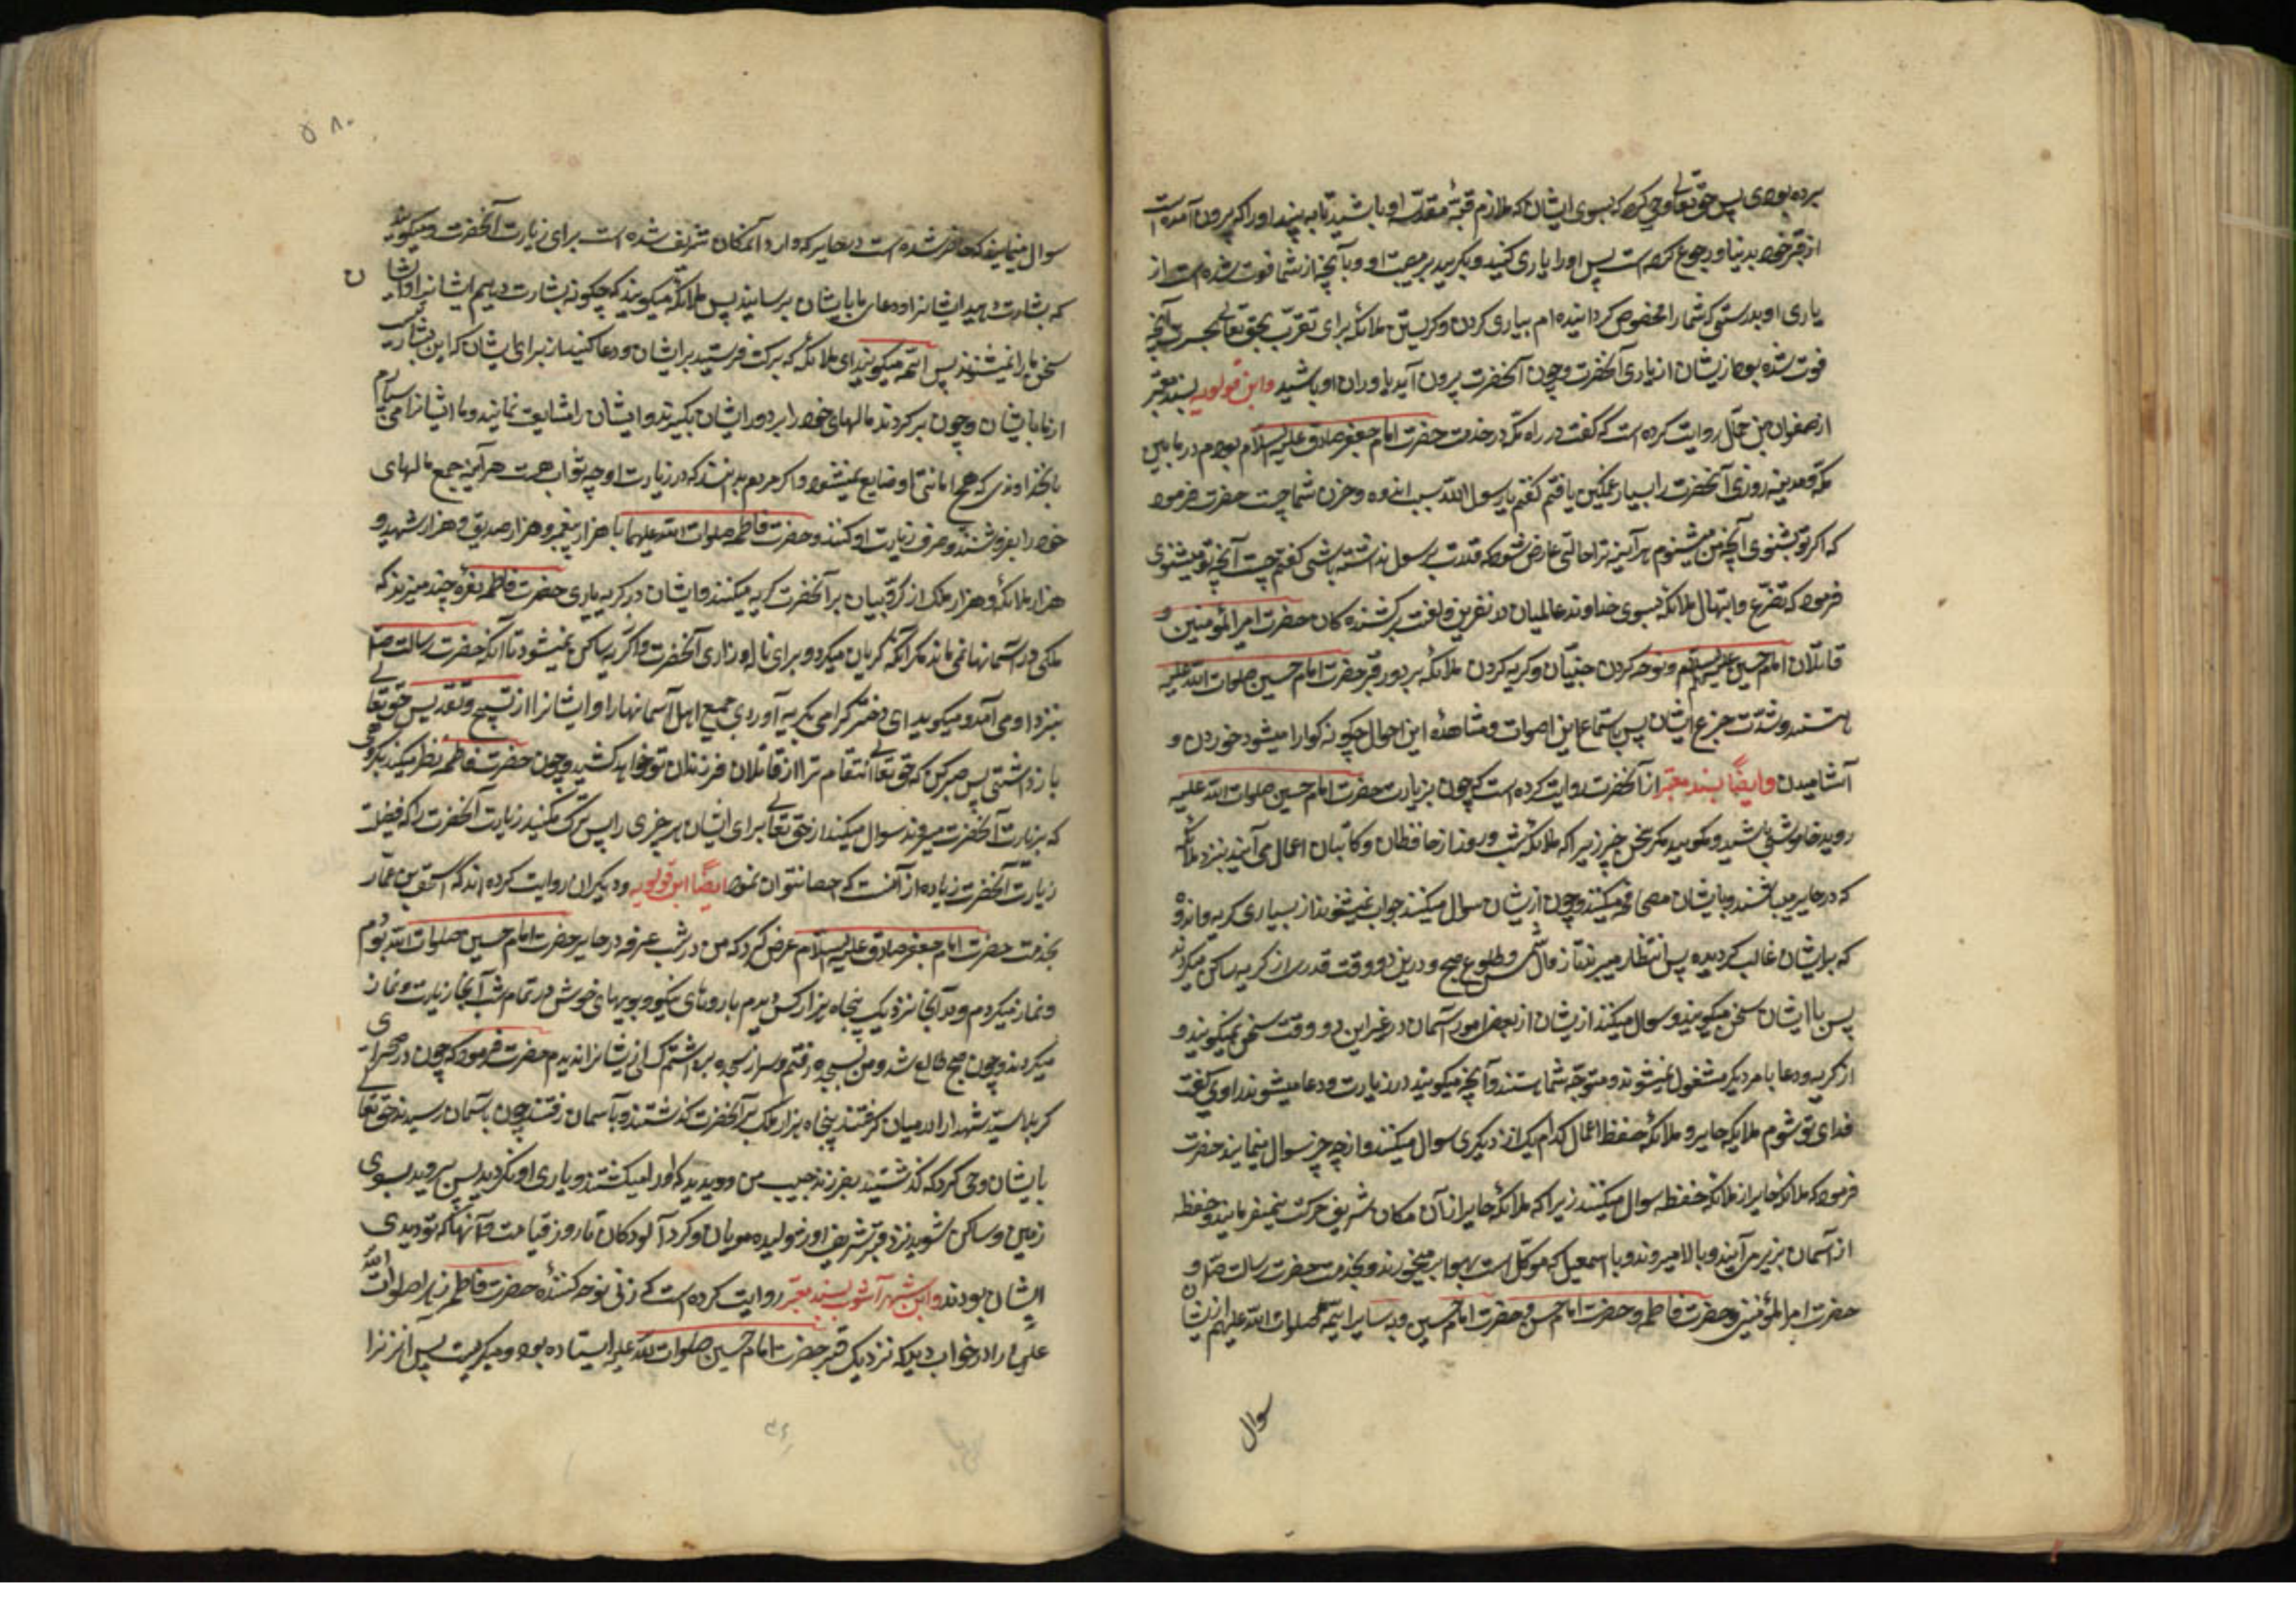 برده بودی پس حق تعالی وحی کرد که بسوی ایشان که ملازم قبّهٔ مقدّسه او باشید تا به بینید او را که بیرون آمده است
از قبر خود بدنیا و رجوع کرده است پس او را یاری کنید و بگریید بر مصیبت او و بآنچه از شما فوت شده است از
یاری او بدرستی که شما را مخصوص گردانیده ام بیاری کردن و گریستن ملائکه برای تقرّب بحق تعالی بحسرت آنچه
فوت شده بود از یشان از یاری آنحضرت و چون آنحضرت بیرون آید یاوران او باشید وابن قولویه بسند معتبر
از صفوان بن جمّال روایت کرده است که گفت در راه مکّه در خدمت حضرت امام جعفر صادق علیه السلام بودم در مابین
مکّه و مدینه روزی آنحضرت را بسیار غمگین یافتم گفتم یا رسول اللّه سبب اندوه و حزن شما چیست حضرت فرمود
که اگر تو بشنوی آنچه من میشنوم هر آینه ترا حالتی عارض شود که قدرت بر سوال نداشته باشی گفتم چیست آنچه تو میشنوی
فرمود که تضرّع و ابتهال ملائکه بسوی خداوند عالمیان در نفرین و لعنت بر کشنده کان حضرت امیر المؤمنین و
قاتلان امام حسین علیهم السلام و نوحه کردن جنیّان و گریه کردن ملائکه بر دور قبر حضرت امام حسین صلوات اللّه علیه
هستند و شدّت جزع ایشان پس باستماع این اصوات و مشاهدهٔ این احوال چگونه گوارا میشود خوردن و
آشامیدن وایضًا بسند معتبر از آنحضرت روایت کرده است که چون بزیارت حضرت امام حسین صلوات اللّه علیه
روید خاموش باشید و مگویید مگر سخن خیر زیرا که ملائکه شب و روز از حافظان و کاتبان اعمال می آیند بنزد ملائکه
که در حایر میباشند و بایشان مصافحه میکنند و چون از یشان سوال میکنند جواب نمیشنوند از بسیاری گریه و اندوه
که بر ایشان غالب گردیده پس انتظار میبرند تا زوال شمس و طلوع صبح و درین دو وقت قدری از گریه ساکن میگردند
پس با ایشان سخن میگویند و سوال میکنند از یشان از بعض امور آسمان در غیر این دو وقت سخن نمیگویند و
از گریه و دعا بامر دیگر مشغول نمیشوند و متوجّه شما هستند و آنچه میگویید در زیارت و دعا میشنوند راوی گفت
فدای تو شوم ملایکه حایر و ملائکه حفظ اعمال کدام یک از دیگری سوال میکنند و از چه چیز سوال مینمایند حضرت
فرمود که ملائکه حایر از ملائکه حفظه سوال میکنند زیرا که ملائکه حایر از آن مکان شریف حرکت نمیفرمایند و حفظه
از آسمان بزیر می آیند و بالا میروند و با اسمعیل که موکّل است بهوا بر میخورند و بخدمت حضرت رسالت ص و
حضرت امیر المؤمنین و حضرت فاطمه و حضرت امام حسن و حضرت امام حسین و به سایر ائمّه صلوات اللّه علیهم از یشان
سوال
۵۸۰
سوال مینمایند که حاضر شده است در حایر که وارد آنمکان شریف شده است برای زیارت آنحضرت و میگویند
که بشارت دهید ایشانرا و دعای ما بایشان برسانید پس ملائکه میگویند که چگونه بشارت دهیم ایشانرا و ایشان
سخن ما را نمیشنوند پس ائمّه میگویند ای ملائکه که برکت فرستید بر ایشان و دعا کنید از برای ایشان که این بشارتیست
از ما بایشان و چون برگردند بالهای خود را بر دور ایشان بگیرند و ایشان را مشایعت نمایند و ما ایشانرا می سپاریم
بآنخداوندی که هیچ امانتی نزد او ضایع نمیشود و اگر مردم بدانند که در زیارت او چه ثواب هست هر آینه جمیع مالهای
خود را بفروشند و صرف زیارت او کنند و حضرت فاطمه صلوات اللّه علیهما با هزار پیغمبر و هزار صدیق و هزار شهید و
هزار ملائکه و هزار ملک از کرّوبیان بر آنحضرت گریه میکنند و ایشان در گریه یاری حضرت فاطمه نعرهٔ چند میزنند که
ملکی در آسمانها نمی ماند مگر آنکه گریان میگردد برای ناله و زاری آنحضرت و از گریه ساکن نمیشود تا آنکه حضرت رسالت ص
بنزد او می آید و میگوید ای دختر گرامی بگریه آوردی جمیع اهل آسمانها را و ایشانرا از تسبیح و تقدیس حق تعالی
بازداشتی پس صبر کن که حق تعالی انتقام ترا از قاتلان فرزندان تو خواهد کشید و چون حضرت فاطمه نظر میکند بگروهی
که بزیارت آنحضرت میروند سوال میکند از حق تعالی برای ایشان هر چیزی را پس ترک مکنید زیارت آنحضرت را که فضیلت
زیارت آنحضرت زیاده از آنست که احصا نتوان نمود ایضًا ابن قولویه و دیگران روایت کرده اند که اسحق بن عمّار
بخدمت حضرت امام جعفر صادق علیه السلام عرض کرد که من در شب عرفه در حایر حضرت امام حسین صلوات اللّه بودم
و نماز میکردم و در آنجا نزدیک پنجاه هزار کس دیدم با روهای نیکو و بویهای خوش در تمام شب آنجا زیارت و نماز
میکردند و چون صبح طالع شد و من بسجده رفتم و سر از سجده برداشتم کسی از یشانرا ندیدم حضرت فرمود که چون در صحرای
کربلا سیّد شهدا را در میان گرفتند پنجاه هزار ملک بر آنحضرت گذشتند و بآسمان رفتند چون بآسمان رسیدند حق تعالی
بایشان وحی کرد که گذشتید بفرزند حبیب من و دیدید که او را میکشتند و یاری او نکردید پس بروید بسوی
زمین و ساکن شوید نزد قبر شریف او ژولیده مویان و گرد آلودکان تا روز قیامت و آنها که تو دیدی
ایشان بودند وابن شهر آشوب بسند معتبر روایت کرده است که زنی نوحه کننده حضرت فاطمه زهرا صلوات اللّه
علیها را در خواب دید که نزدیک قبر حضرت امام حسین صلوات اللّه علیه ایستاده بود و میگریست پس آن زنرا